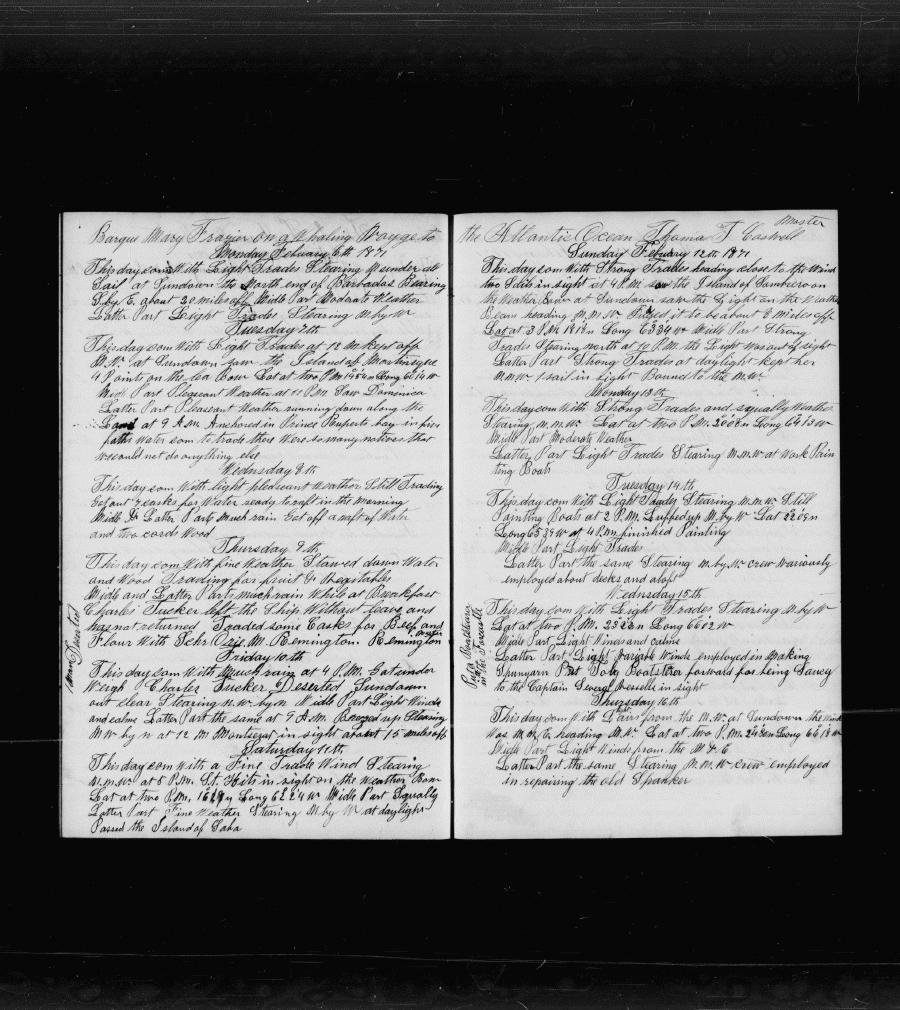 Barque Mary Frazier on a Whaling Voyage to
Monday Febuary 6th 1871
This day com With Light Trades Stearing W under all
Sail at Sundown the North end of Barbados Bearing
S by E. about 20 miles off Midle Part Moderate Weather
Latter Part Light Trades Stearing N by W
Tuesday 7th
This day com With Light Trades at 12 M kept off
M.W. at Sundown saw the Island of Martinique
4 Points on the Lea Bow Lat at two P.M 1454 n Long 6014 W
Midle Part Pleasant Weather at 11 P.M. Saw Dominica
Latter Part Pleasant Weather running down along the
Land at 9 A.M. Anchored in Prince Ruperts bay in five
faths Water som to trade there Were so many natives that
we could not do anything else
Wednesday 8th
This day com With light pleasant Weather Still Trading
Got out 7 casks for Water ready to raft in the Morning
Midle & Latter Part Much rain Got off a raft of Water
and two cords Wood
Thursday 9th
This day com With fine Weather Stawed down Water
and Wood Trading for fruit & Vegatables
Midle and Latter Parts much rain While at Breakfast
Charles Tucker left the Ship Without leave and
has not returned Traded some Casks for Beef and
Flour With Schr Ozie. M. Remington. Remington master
Friday 10th
1 Man Deserted
This day com With Much rain at 4 P.M. Got under
Weigh Charles Tucker Deserted Sundown
out clear Stearing N.W. by N Midle Part Light Winds
and calms Latter Part the same at 9 A.M. Breezed up Stearing
N W by n at 12 M Montserat in sight about 15 miles off
Saturday 11th
This day com with a Fine Trade Wind Stearing
W.N.W. at 5 P.M. St Kits in sight on the Weather Bow
Lat at two P.M. 1629 n Long 6224 W Midle Part Squally
Latter Part Fine Weather Stearing N by W at daylight
Passed the Island of Saba
the Atlantic Ocean Thomas T Caswell Master
Sunday Febuary 12th 1871
This day com With Strong Trades heading close to the Wind
two Sails in sight at 4 P.M. saw the Island of Sombrero on
the Weather Bow at Sundown saw the Light on the Weather
Beam heading N.N.W. Judged it to be about 8 miles off
Lat at 3 P.M. 1818 n Long 6334 W Midle Part Strong
Trades Stearing North at 10 P.M. the Light Was out of sight
Latter Part Strong Trades at daylight kept her
N.N.W. 1 sail in sight Bound to the N.W.
Monday 13th
This day com With Strong Trades and squally Weather
Stearing N.N.W. Lat at two P.M. 2008 n Long 6413 W
Midle Part Moderate Weather
Latter Part Light Trades Stearing N.N.W at Work Pain
ting Boats
Tuesday 14th
This day com With Light Trades Stearing N.N.W. Still
Painting Boats at 2 P.M. Luffed up N. by W Lat 2209 n
Long 6539 W at 4 P.M. finished Painting
Middle Part Light Trades
Latter Part the same Stearing N. by W. crew variously
employed about decks and aloft
Wednsday 15th
Put a Boatsteerer in the Forcastle
This day com With Light Trades Stearing N by W
Lat at two P.M. 2323 n Long 6602 W
Midle Part Light Winds and calms
Latter Part Light variable Winds employed in Making
Spunyarn Put Boatsteerer forward for being Saucy
to the Captain Several Vessells in sight
Thursday 16th
This day com With Lairs from the N.W. at Sundown the Wind
Was N.N.E. heading N.W. Lat at two P.M. 2428 n Long 6618 W
Midle Part Light Winds from the N & E
Latter Part the same Stearing N.N.W crew employed
in repairing the old Spanker